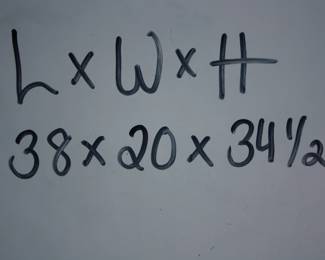 L x W x H
38 x 20 x 34 1/2